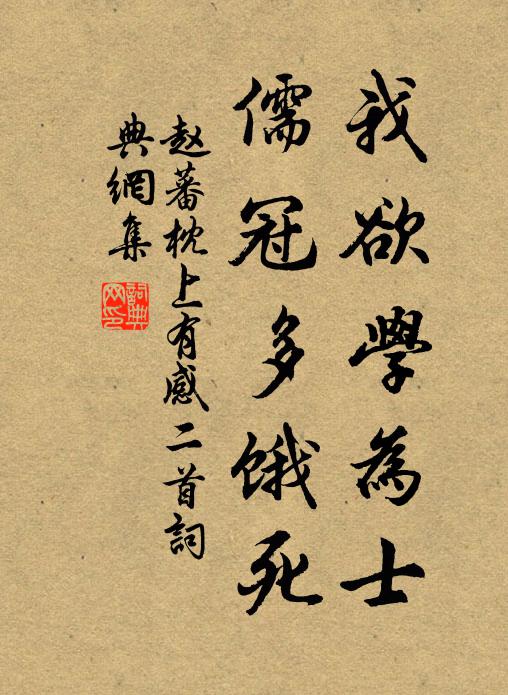 我欲學為士
儒冠多餓死
赵蕃枕上有感二首詞
典網集
詞典
网印